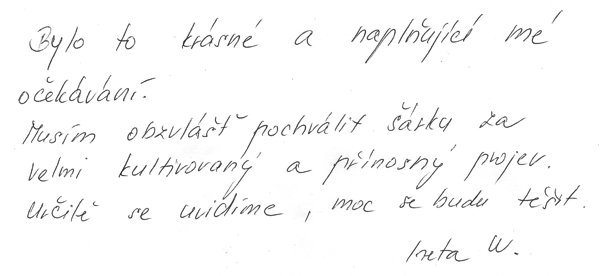 Bylo to krásné a naplňující mé
očekávání.
Musím obzvlášť pochválit Šárku za
velmi kultivovaný a přínosný projev.
Určitě se uvidíme, moc se budu těšit.
Iveta W.